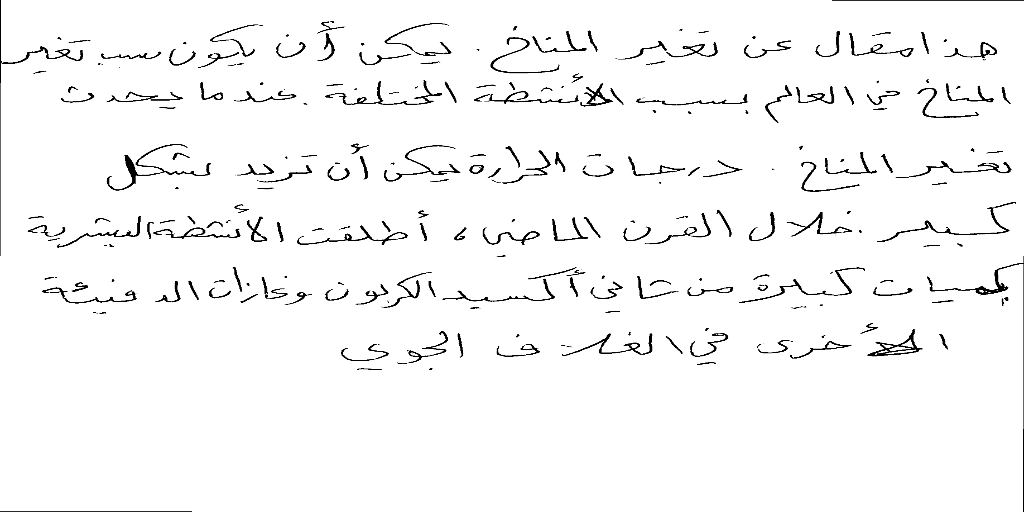 هذا مقال عن تغير المناخ. يمكن أن يكون سبب تغير
المناخ في العالم بسبب الأنشطة المختلفة. عندما يحدث
تغير المناخ. درجات الحرارة يمكن أن تزيد بشكل
كبير. خلال القرن الماضي، أطلقت الأنشطة البشرية
كميات كبيرة من ثاني أكسيد الكربون وغازات الدفيئة
الأخرى في الغلاف الجوي